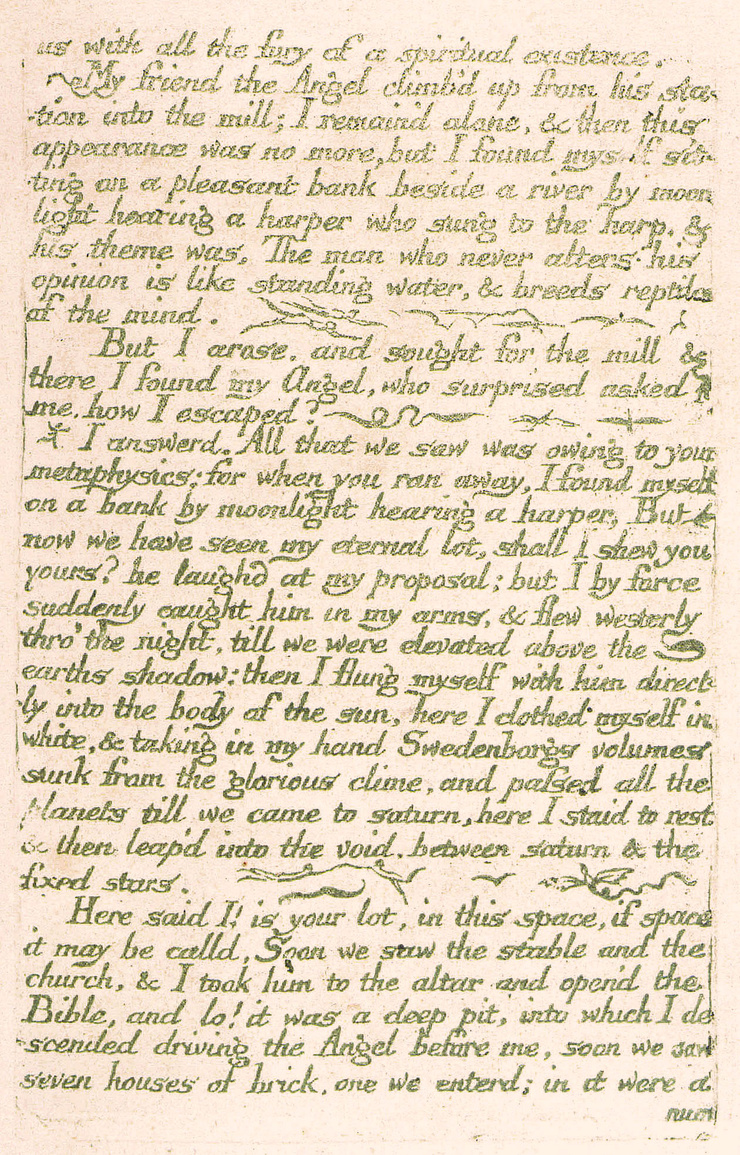 us with all the fury of a spiritual existence.
My friend the Angel climb'd up from his sta-
-tion into the mill; I remain'd alone, & then this
appearance was no more, but I found myself sit-
ting on a pleasant bank beside a river by moon
light hearing a harper who sung to the harp. &
his theme was, The man who never alters his
opinion is like standing water, & breeds reptiles
of the mind.
But I arose, and sought for the mill &
there I found my Angel, who surprised asked
me, how I escaped?
I answerd. All that we saw was owing to your
metaphysics; for when you ran away, I found myself
on a bank by moonlight hearing a harper, But
now we have seen my eternal lot, shall I shew you
yours? he laughd at my proposal; but I by force
suddenly caught him in my arms, & flew westerly
thro' the night, till we were elevated above the
earths shadow: then I flung myself with him direct-
-ly into the body of the sun, here I clothed myself in
white, & taking in my hand Swedenborgs volumes
sunk from the glorious clime, and passed all the
planets till we came to saturn, here I staid to rest
& then leap'd into the void, between saturn & the
fixed stars.
Here said I! is your lot, in this space, if space
it may be calld, Soon we saw the stable and the
church, & I took him to the altar and open'd the
Bible, and lo! it was a deep pit, into which I de
-scended driving the Angel before me, soon we saw
seven houses of brick, one we enterd; in it were a
num